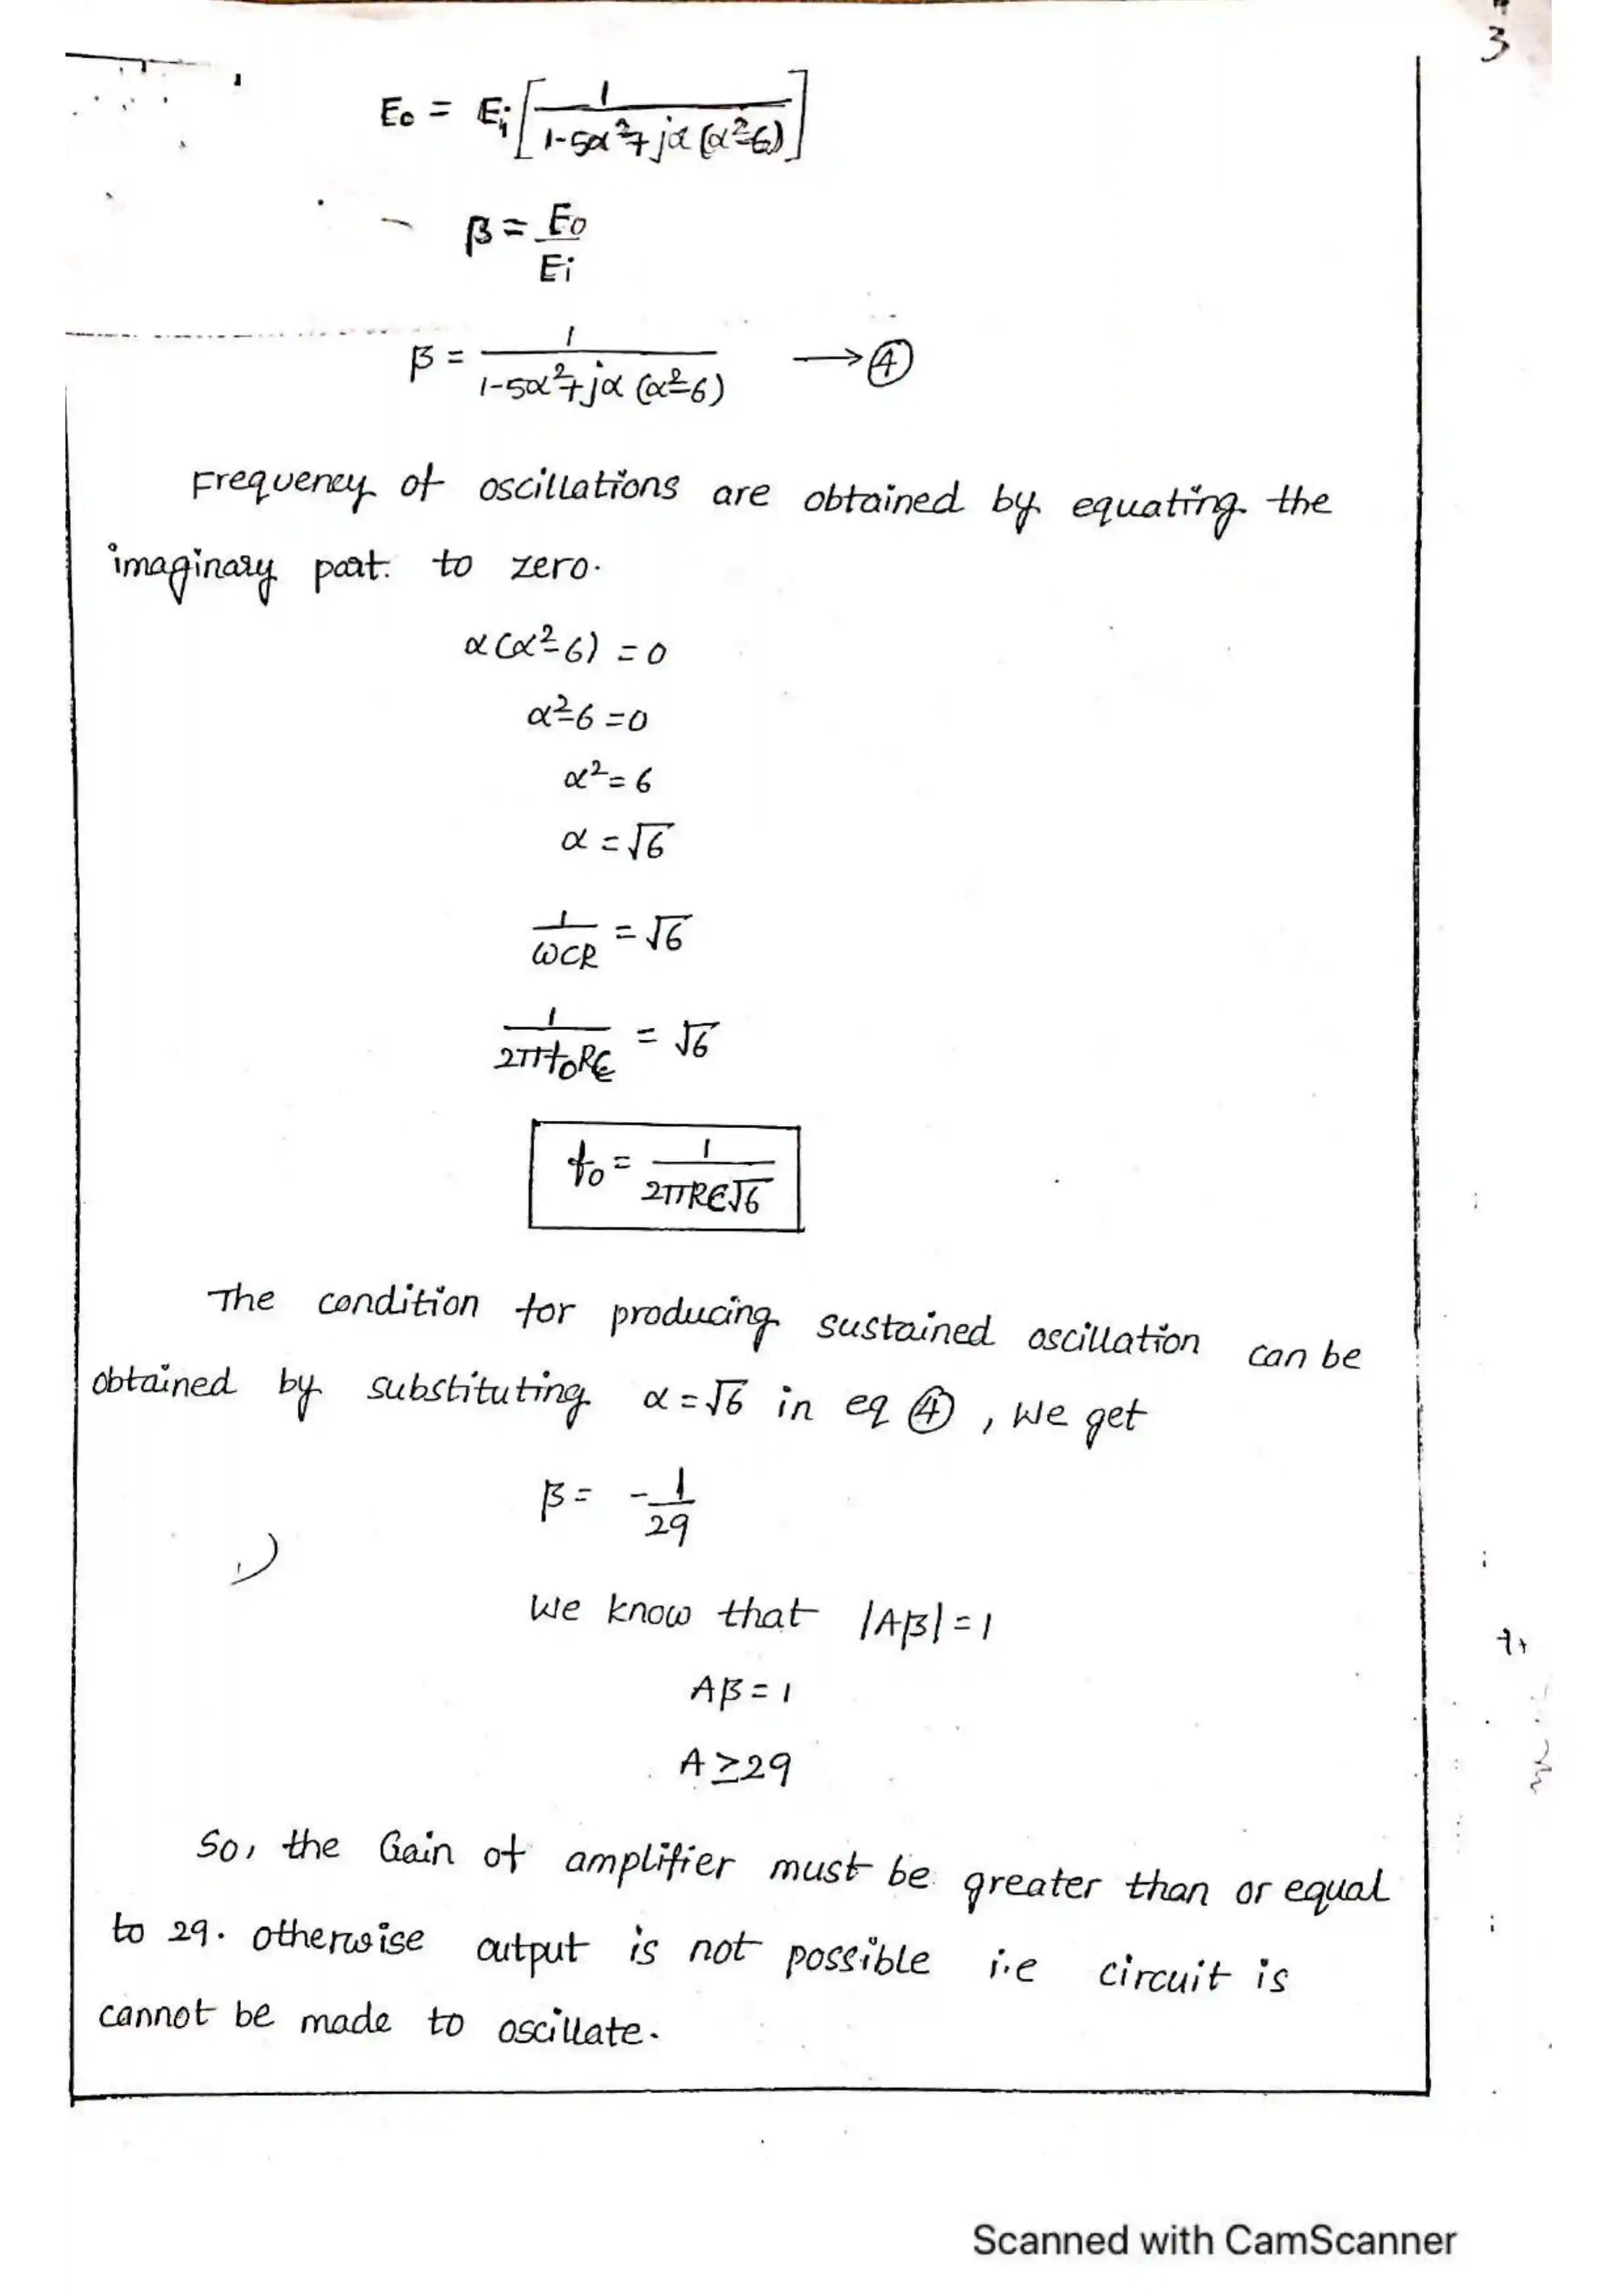 3
E₀ = Eᵢ [ 1 / (1-5α²+jα(α²-6)) ]
β = E₀ / Eᵢ
β = 1 / (1-5α²+jα(α²-6)) → ④
Frequency of oscillations are obtained by equating the
imaginary part. to zero.
α(α²-6) = 0
α²-6 = 0
α² = 6
α = √6
1/ωCR = √6
1/2πf₀RC = √6
f₀ = 1/2πRC√6
The condition for producing sustained oscillation can be
obtained by substituting α = √6 in eq ④, we get
β = -1/29
we know that |Aβ| = 1
Aβ = 1
A ≥ 29
So, the Gain of amplifier must be greater than or equal
to 29. otherwise output is not possible i.e circuit is
cannot be made to oscillate.
Scanned with CamScanner